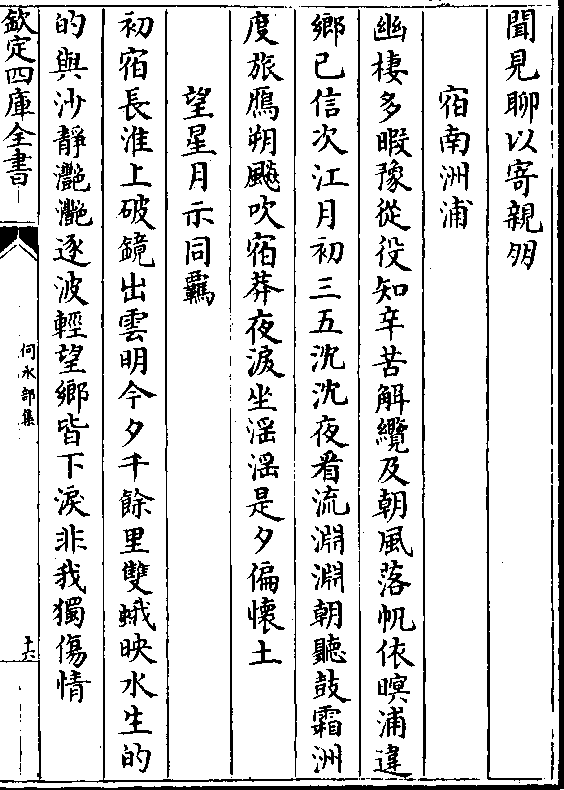 聞見聊以寄親朋
宿南洲浦
幽棲多暇豫從役知辛苦解纜及朝風落帆依暝浦違
鄉已信次江月初三五沈沈夜看流淵淵朝聽鼓霜洲
度旅鴈朔飈吹宿莽夜淚坐淫淫是夕偏懷土
望星月示同羈
初宿長淮上破鏡出雲明今夕千餘里雙蛾映水生的
的與沙靜灧灧逐波輕望鄉皆下淚非我獨傷情
欽定四庫全書
何水部集
十六